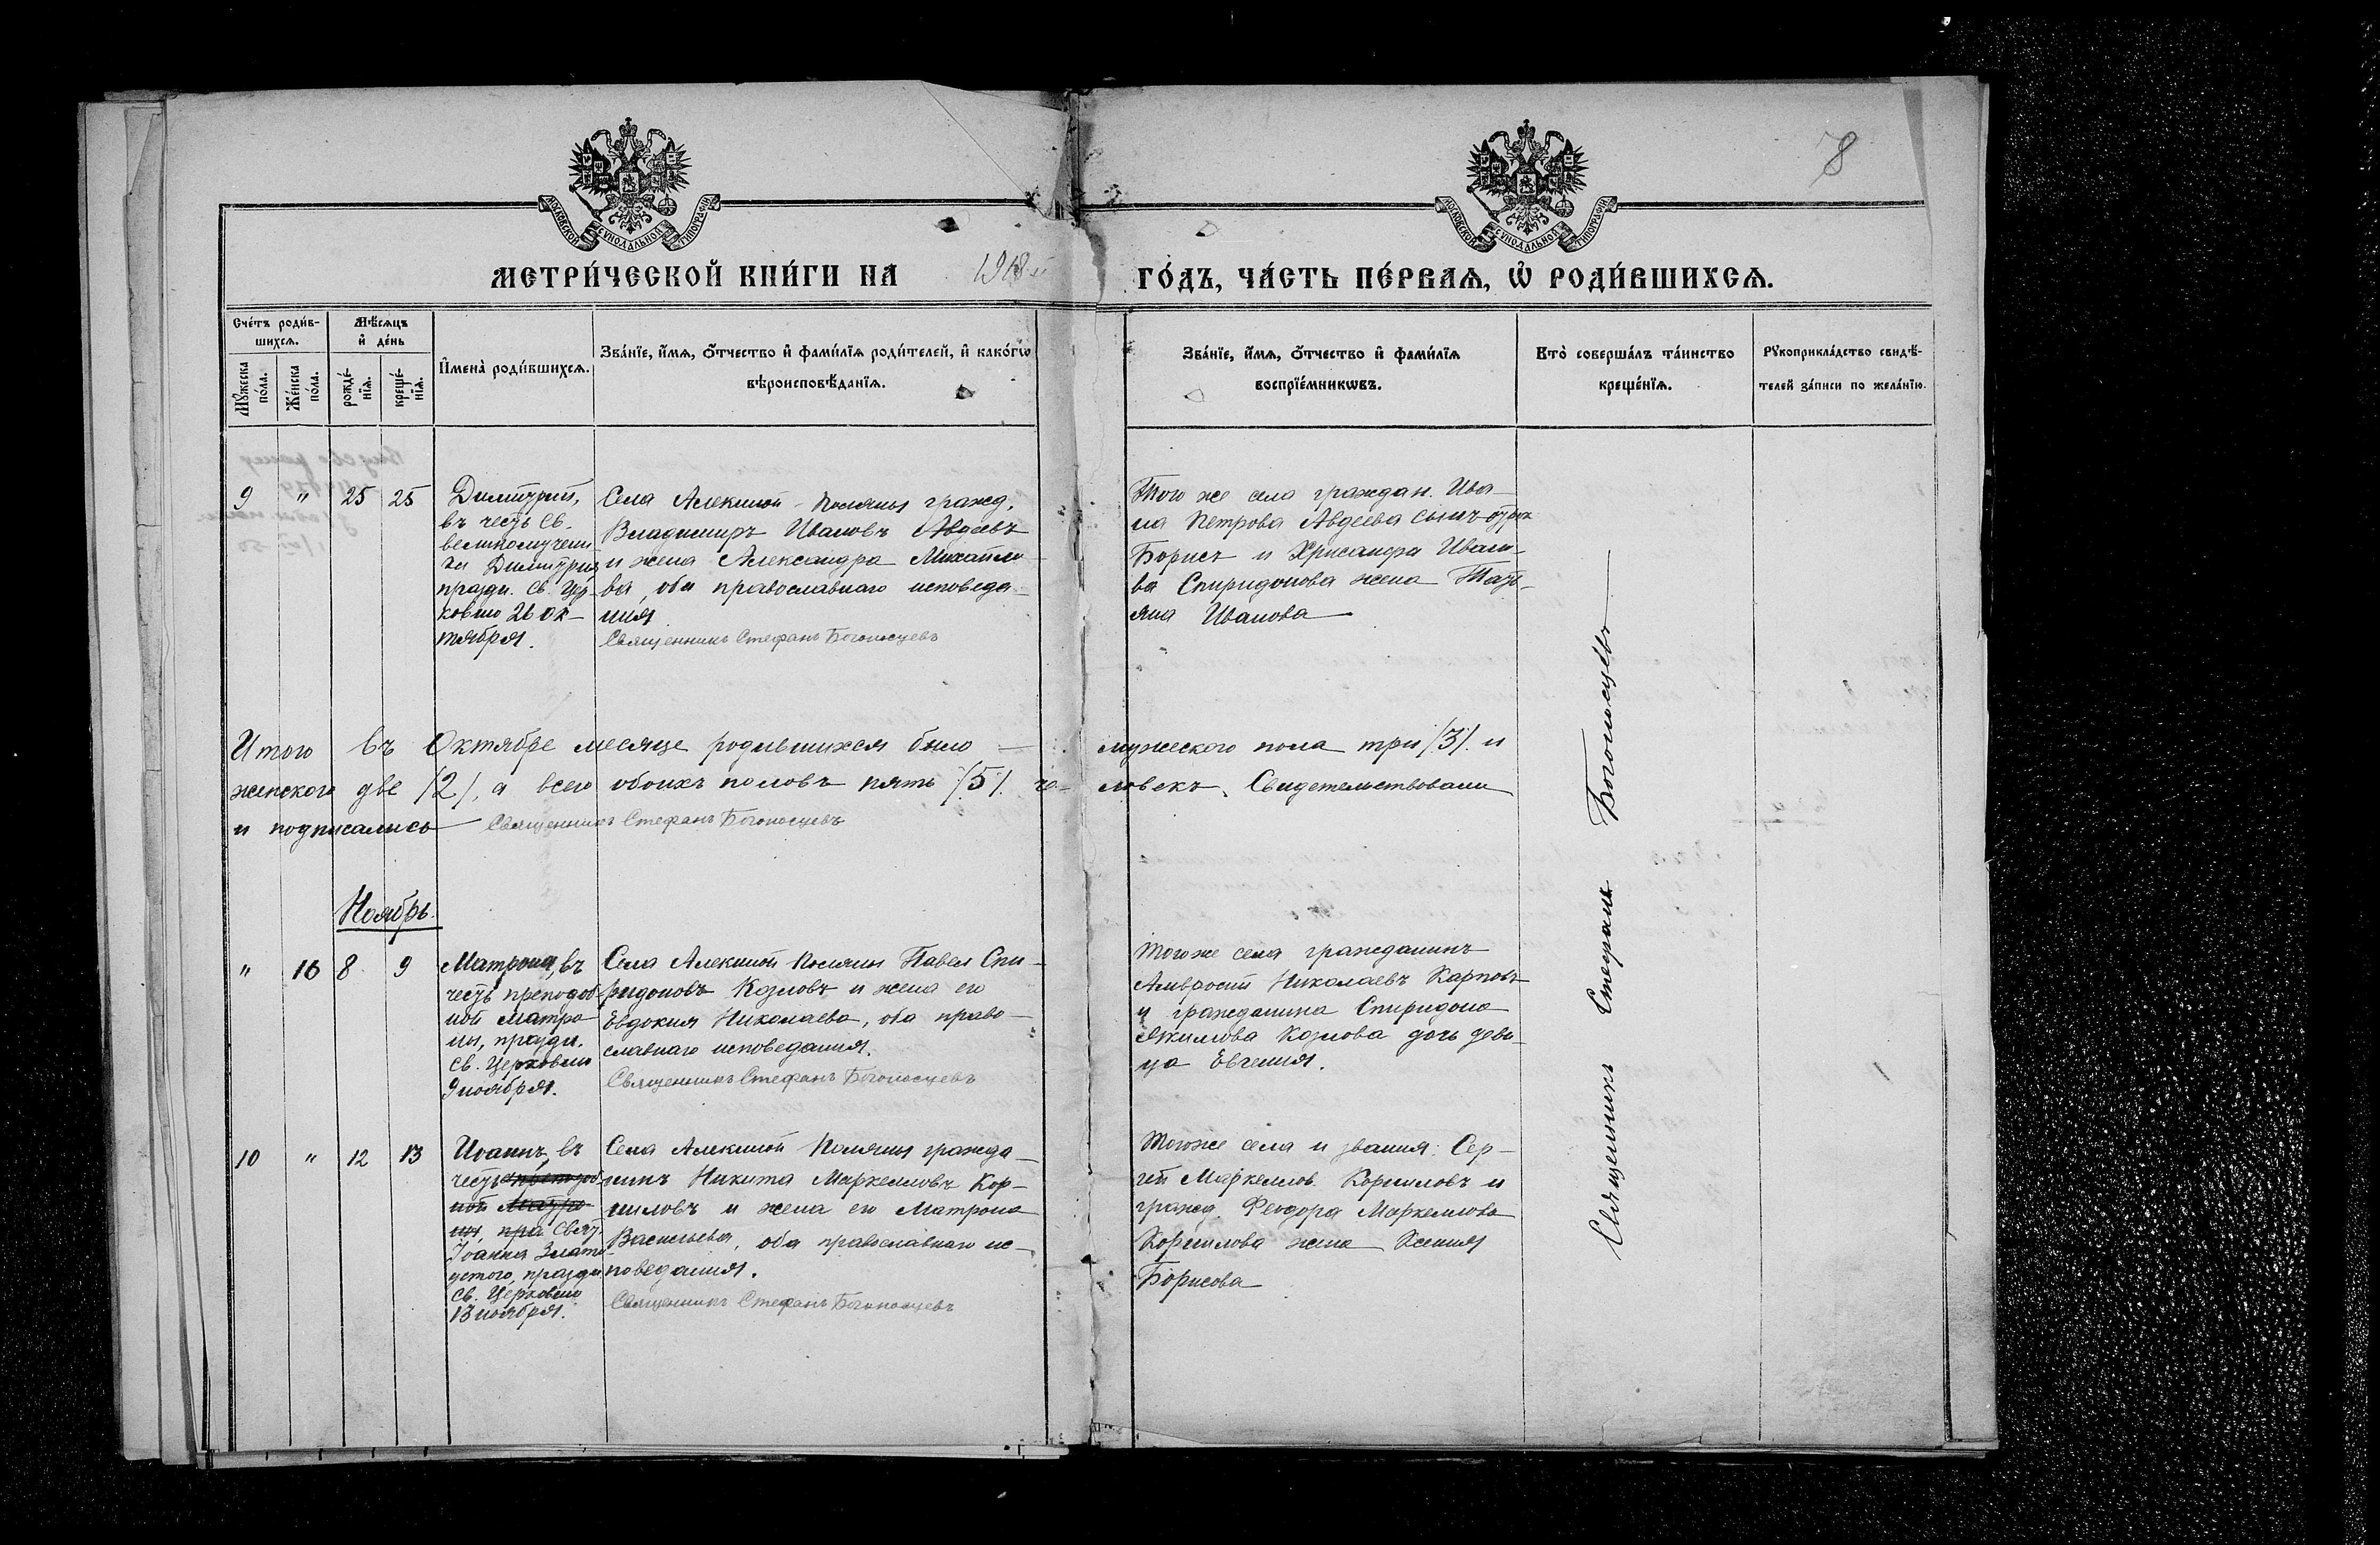 78
МОСКОВСКОЙ СУНОДАЛЬНОЙ ТИПОГРАФІИ
МОСКОВСКОЙ СУНОДАЛЬНОЙ ТИПОГРАФІИ
МЕТРИ́ЧЕСКОЙ КНИ́ГИ НА 1918 й ГО́ДЪ, ЧА́СТЬ ПЕ́РВАѦ, Ѡ҆ РОДИ́ВШИХСѦ.
Сче́тъ роди́в-
шихсѧ.
Мꙋ́жеска по́ла.
Же́нска по́ла.
Мѣ́сѧцъ
и҆ де́нь
рожде́-нїѧ.
креще́-нїѧ.
И҆мена̀ роди́вшихсѧ.
Зва́нїе, и҆́мѧ, ѻ҆́тчество и҆ фами́лїѧ роди́телей, и҆ како́гѡ
вѣроисповѣ́данїѧ.
Зва́нїе, и҆́мѧ, ѻ҆́тчество и҆ фами́лїѧ
воспрїе́мникѡвъ.
Кто̀ соверша́лъ та́инство
креще́нїѧ.
Рꙋкоприкла́дство свидѣ́-
телей за́писи по жела́нїю.
9 " 25 25
Димитрий,
въ честь св.
великомучени
ка Димитрия
праздн. св. Цер-
ковию 26 ок-
тября.
Села Алекиной Поляны гражд.
Владимиръ Ивановъ Авдеевъ
и жена Александра Михайло-
ва, оба православнаго исповеда-
ния
Священникъ Стефанъ Богоносцевъ
Того же села граждан. Ива-
на Петрова Авдеева сынъ отрок
Борисъ и Хрисанфа Ивано-
ва Спиридонова жена Тать-
яна Иванова
Итого въ Октябре месяце родившихся было — мужеского пола три /3/. и
женского две /2/, а всего обоихъ половъ пять /5/. че- ловекъ. Свидетельствовали
и подписались Священникъ Стефанъ Богоносцевъ
Ноябрь.
" 16 8 9
Матрона, въ
честь преподоб-
ной Матро
ны, праздн.
св. Церковию
9 ноября.
Села Алекиной Поляны Павел Спи-
ридоновъ Козловъ и жена его
Евдокия Николаева, оба право-
славнаго исповедания.
Священникъ Стефанъ Богоносцевъ
Того же села гражданинъ
Амвросий Николаевъ Карповъ
и гражданина Спиридона
Акимова Козлова дочь деви-
ца Евгения.
10 " 12 13
Иоаннъ, въ
честь преподоб-
ной Матро
ны, пра Свят.
Иоанна Злато
устого, праздн
св. Церковию
13 ноября.
Села Алекиной Поляны гражда-
нинъ Никита Маркелловъ Кор-
ниловъ и жена его Матрона
Васильева, оба православнаго ис-
поведания.
Священникъ Стефанъ Богоносцевъ
Того же села и звания: Сер-
гей Маркеллов. Корниловъ и
гражд. Феодора Маркеллова
Корнилова жена Ксения
Борисова
Священникъ Стефанъ Богоносцевъ